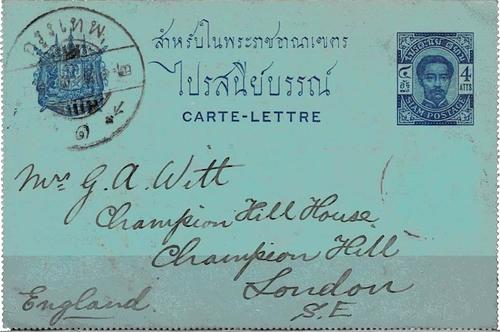 กรุงเทพ
สำหรับในพระราชอาณาเขตร
ไปรสนียบรรณ์
CARTE-LETTRE
4
ATTS
SIAM POSTAGE
Mrs G. A. Witt
Champion Hill House
Champion Hill
London
S.E
England.